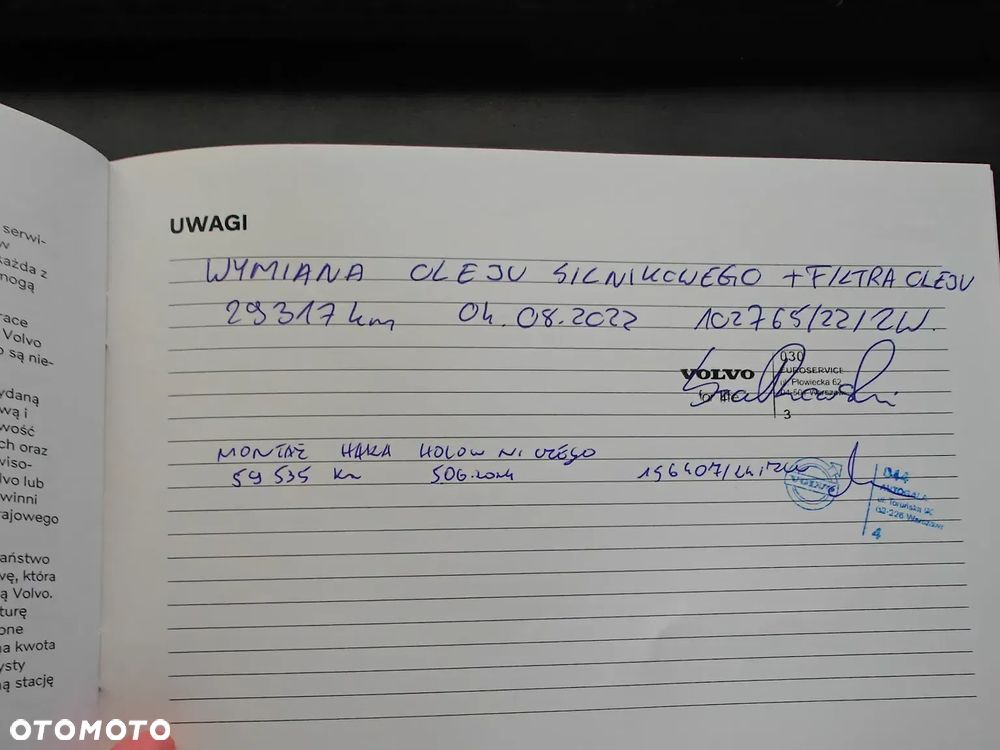 serwi-
w
każda z
mogą
race
Volvo
o są nie-
ydaną
wą i
wość
ch oraz
wiso-
lvo lub
winni
rajowego
aństwo
wę, która
ą Volvo.
turę
one
na kwota
ysty
ną stację
UWAGI
WYMIANA OLEJU SILNIKOWEGO + FILTRA OLEJU
29317 km 04.08.2022 102765/22/ZW.
VOLVO
for life
030
EUROSERVICE
ul. Płowiecka 62
04-501 Warszawa
3
MONTAŻ HAKA HOLOWNICZEGO
59 535 Km
VOLVO
044
AUTOGALA
ul. Toruńska
02-226 Warszawa
4
OTOMOTO